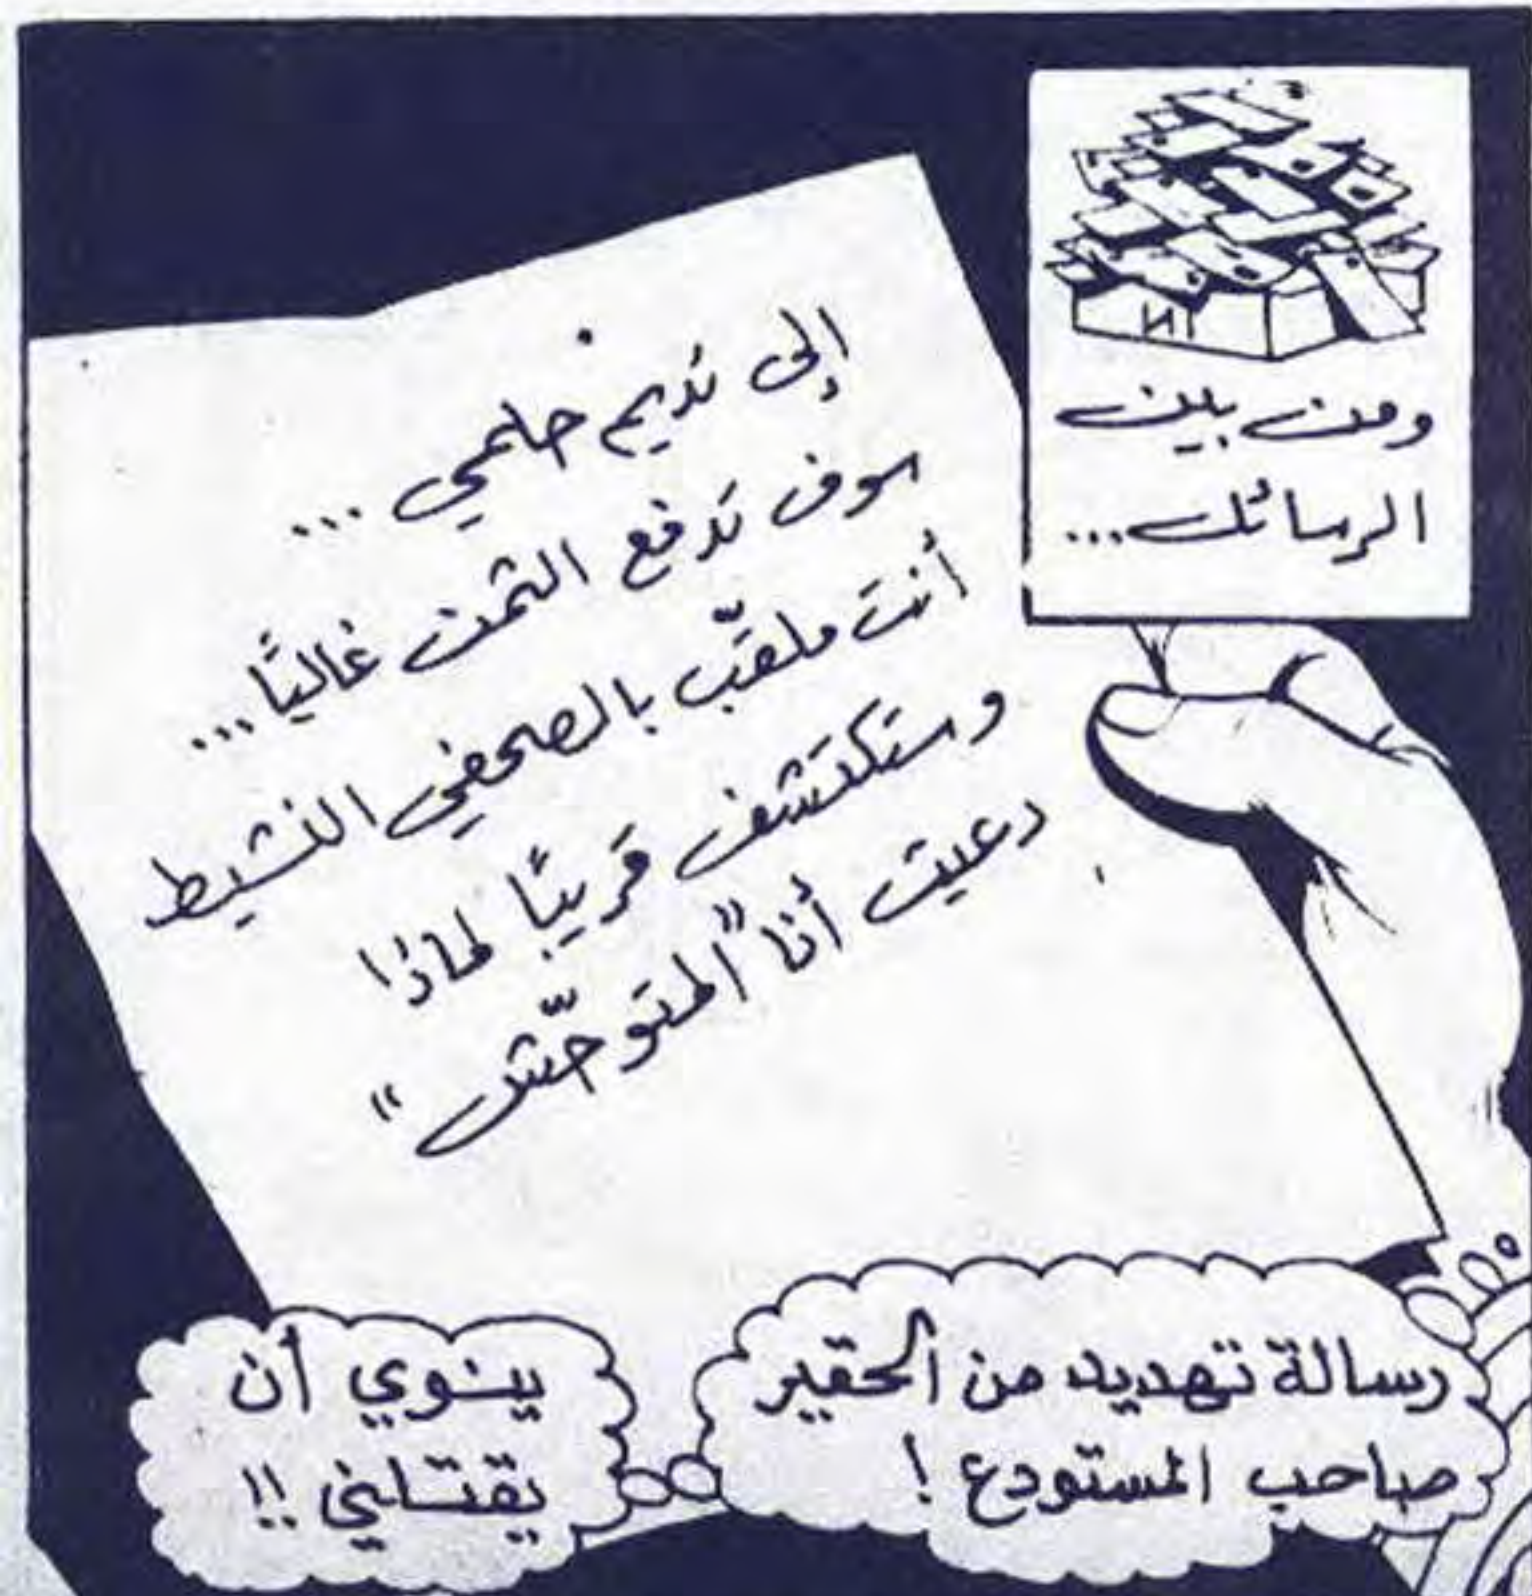 ومن بين
الرسائل...
إلى نديم حلمي ...
سوف تدفع الثمن غاليًا...
أنت ملقّب بالصحفي النشيط
وستكتشف قريبًا لماذا
دعيت أنا "المتوحّش"
رسالة تهديد من الحقير
صاحب المستودع !
ينوي أن
يقتلني !!